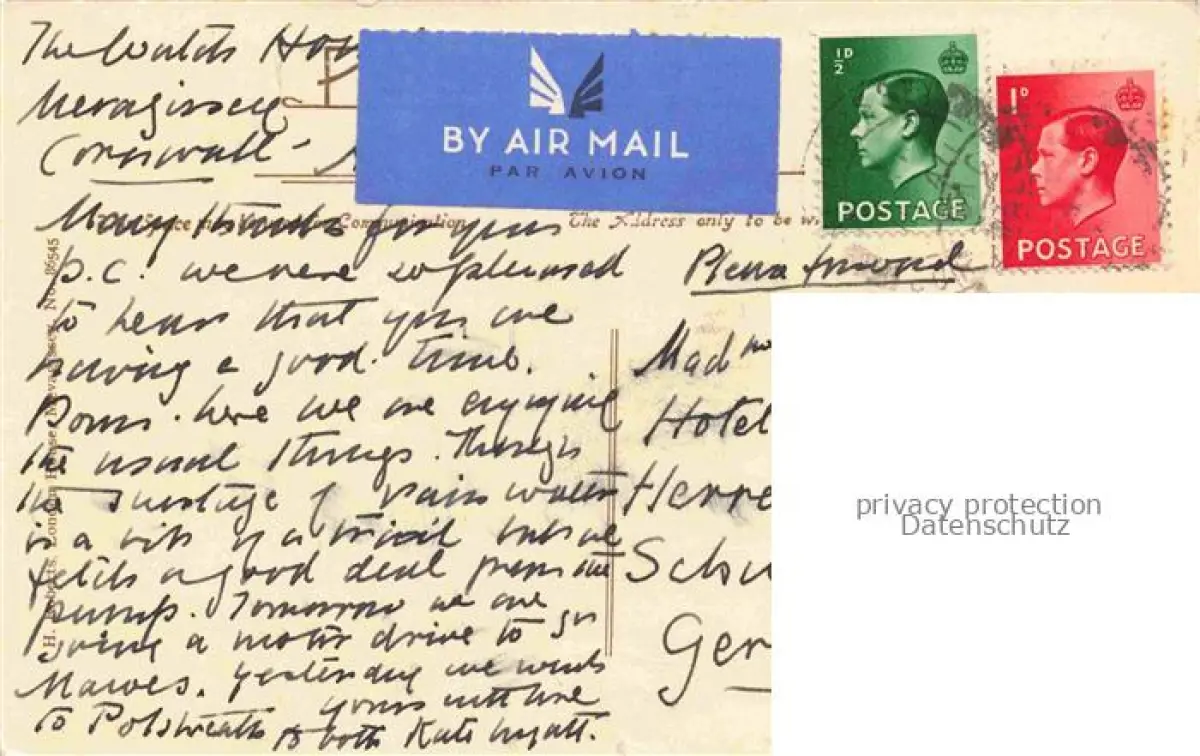 The Watch Hou
Mevagissey
Cornwall -
BY AIR MAIL
PAR AVION
1/2 D
POSTAGE
1D
POSTAGE
Communication
The Address only to be w
Many thanks for your
p.c. we were so pleased
to hear that you are
having a good time.
Down here we are enjoying
the usual things. There is
the shortage of rain water
is a bit of a trial but we
fetch a good deal from the
pump. Tomorrow we are
going a motor drive to St
Mawes. Yesterday we went
to Polstreath
yours with love
to both Kate Wyatt.
Please forward
Mad
Hotel
Herre
Schu
Ger
H. Roberts, London House, Mevagissey. No. 89545
privacy protection
Datenschutz